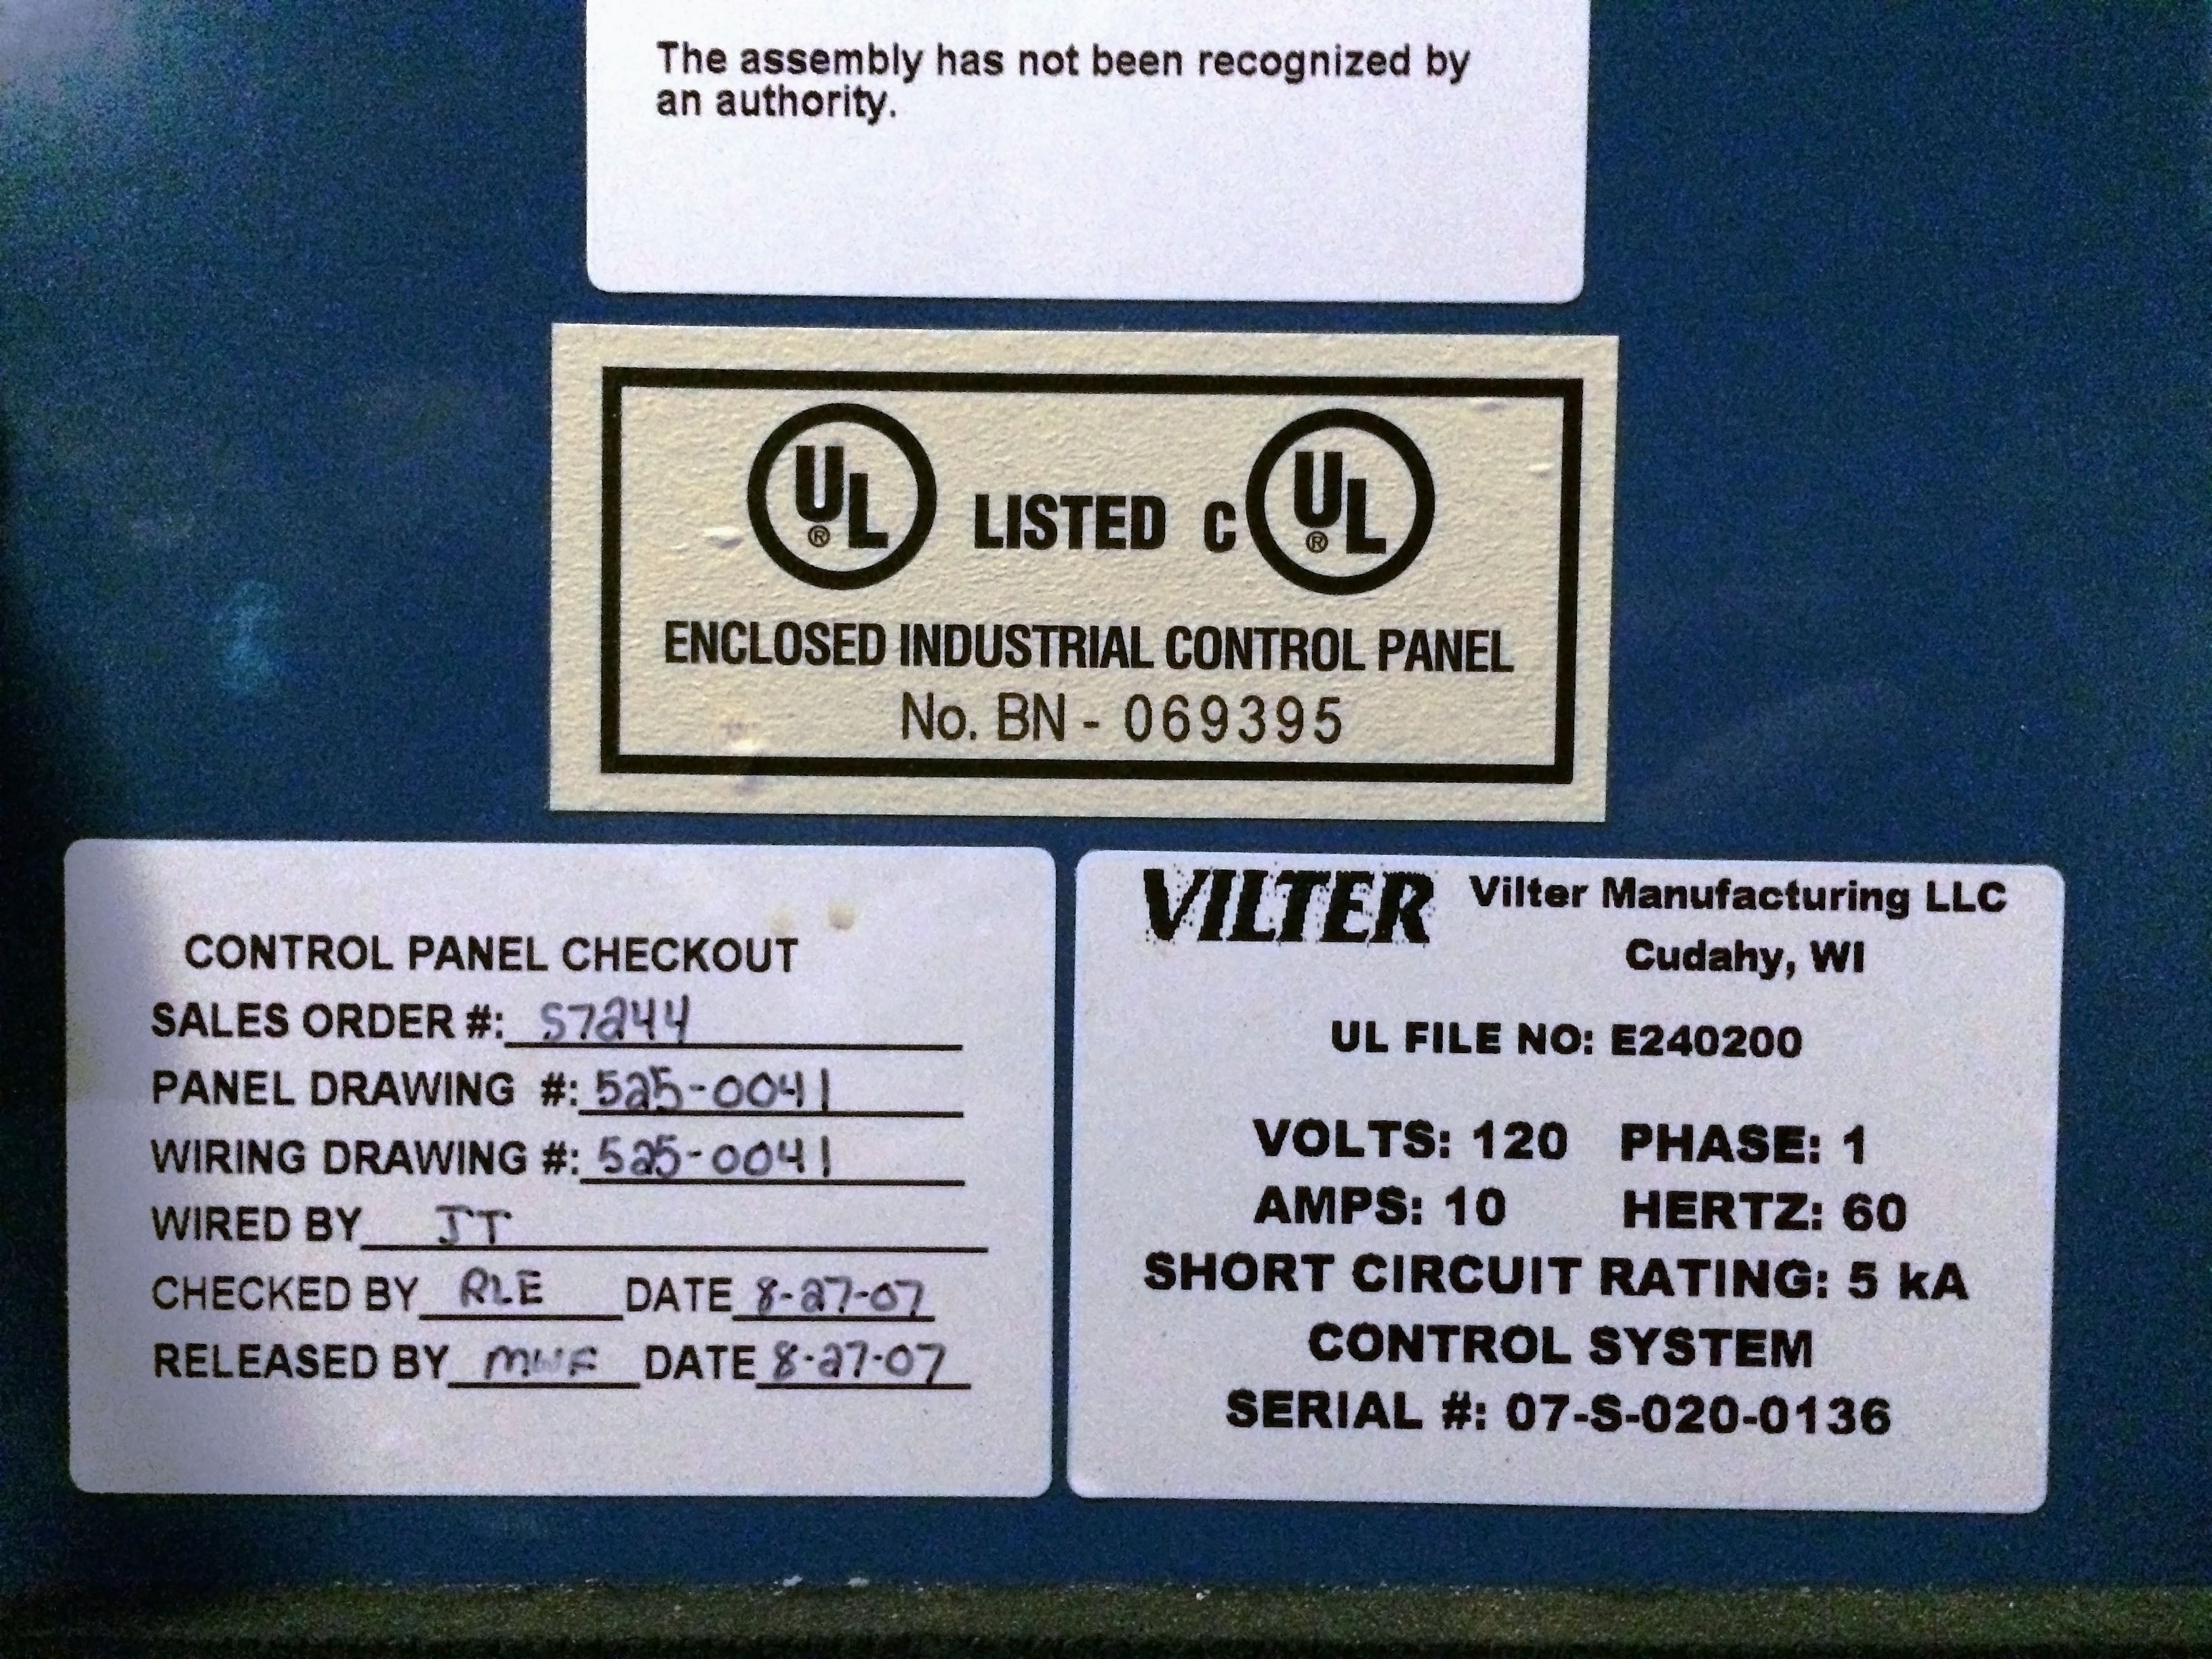 The assembly has not been recognized by
an authority.
UL ® LISTED C UL ®
ENCLOSED INDUSTRIAL CONTROL PANEL
No. BN - 069395
CONTROL PANEL CHECKOUT
SALES ORDER #: S7244
PANEL DRAWING #: 525-0041
WIRING DRAWING #: 525-0041
WIRED BY JT
CHECKED BY RLE DATE 8-27-07
RELEASED BY MWF DATE 8-27-07
VILTER Vilter Manufacturing LLC
Cudahy, WI
UL FILE NO: E240200
VOLTS: 120 PHASE: 1
AMPS: 10 HERTZ: 60
SHORT CIRCUIT RATING: 5 kA
CONTROL SYSTEM
SERIAL #: 07-S-020-0136